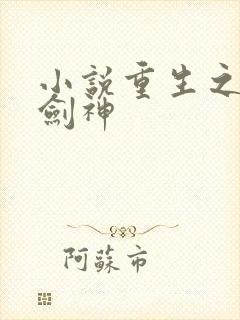 小說重生之
劍神
阿蘇市